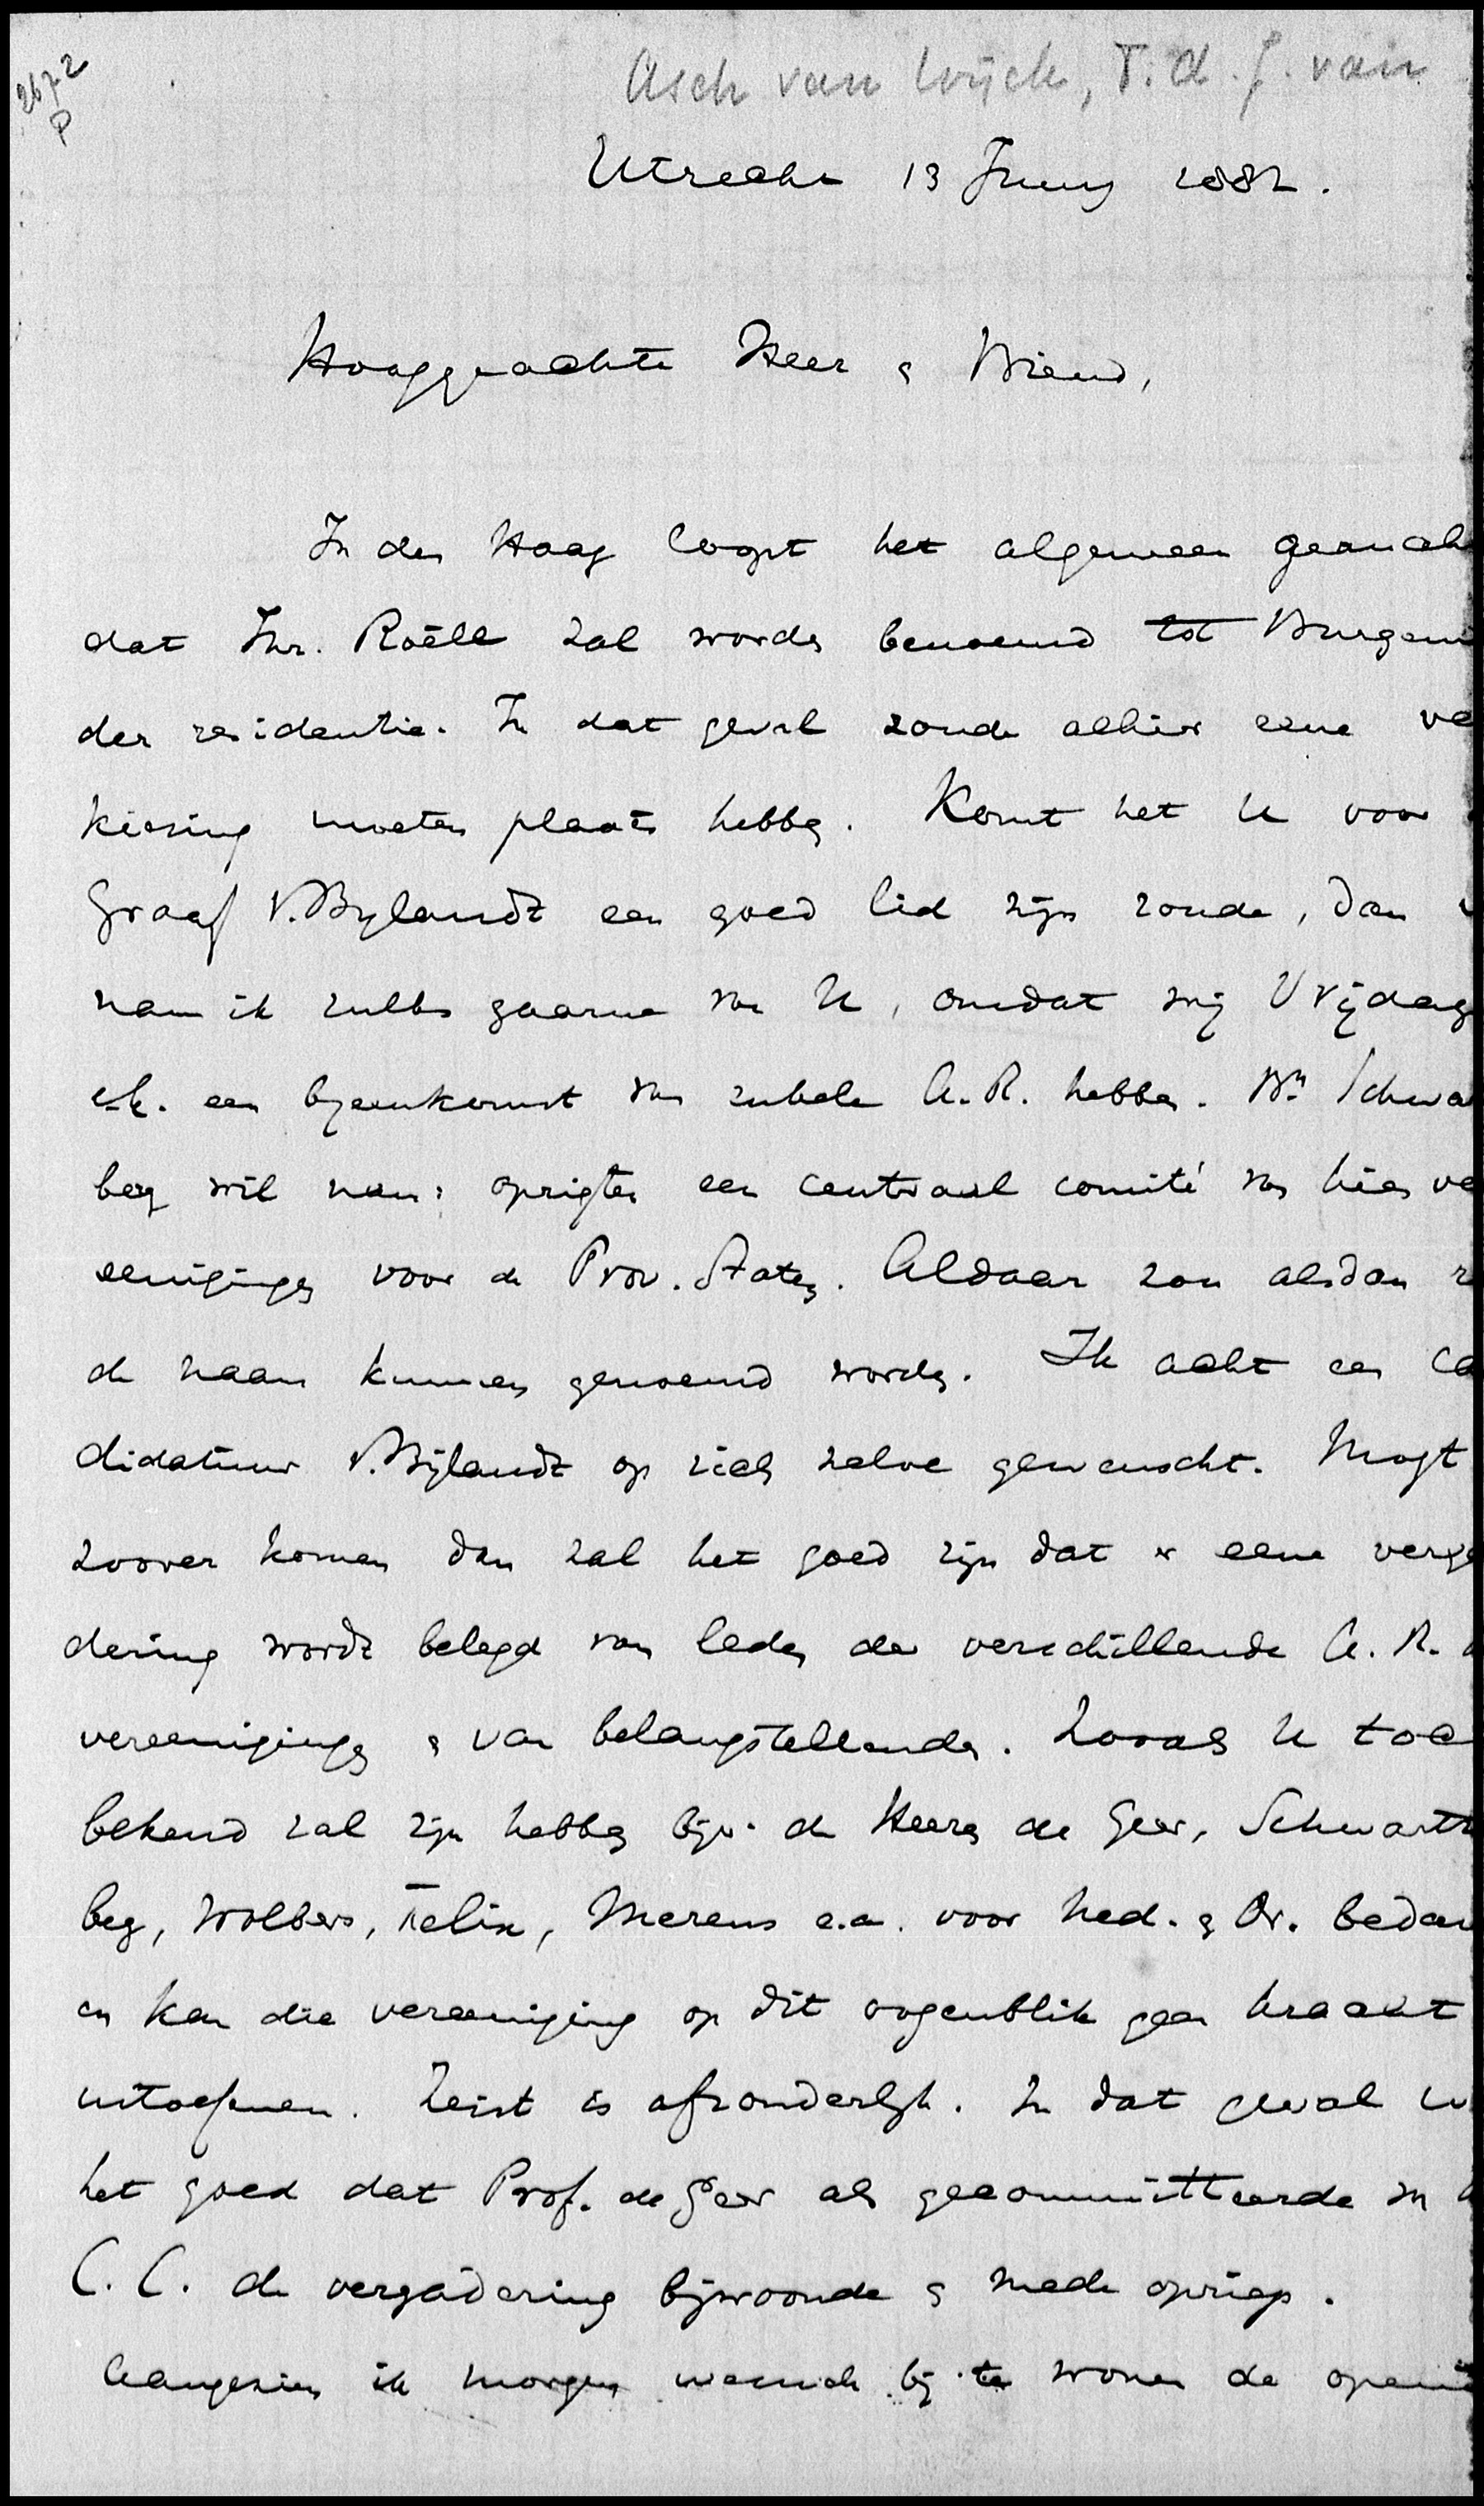 2672
P
Asch van Wijck, T.d.J. van
Utrecht 13 Juny 1882.
Hooggeachte Heer & Vriend,
In den Haag loopt het algemeen gerucht
dat Jhr. Roëll zal worden benoemd tot Burgem
der residentie. In dat geval zoude alhier eene ve
kiezing moeten plaats hebben. Komt het U voor
Graaf v. Bylandt een goed lid zijn zoude, dan
nam ik zulks gaarne van U, omdat wij Vrijdag
e.k. een byeenkomst van enkele A.R. hebben. Mr Schwa
berg wil nam: oprigten een centraal comité van kies ve
eenigingen voor de Prov. Staten. Aldaar zou alsdan
de naam kunnen genoemd worden. Ik acht een ca
didatuur v. Bijlandt op zich zelve gewenscht. Mogt
zoover komen dan zal het goed zijn dat er eene verga
dering wordt belegd van leden der verschillende A.R.
vereenigingen & van belangstellenden. Zooals U toe
bekend zal zijn hebben bijv. de Heeren de Geer, Schwartz
berg, Wolbers, Felix, Merens e.a. voor Ned. & Or. bedan
en kan die vereeniging op dit oogenblik geen kracht
uitoefenen. Zeist is afzonderlijk. In dat geval w
het goed dat Prof. de Geer als gecommitteerde van
C.C. de vergadering bijwoonde & mede opriep.
Aangezien ik morgen wensch bij te wonen de openi